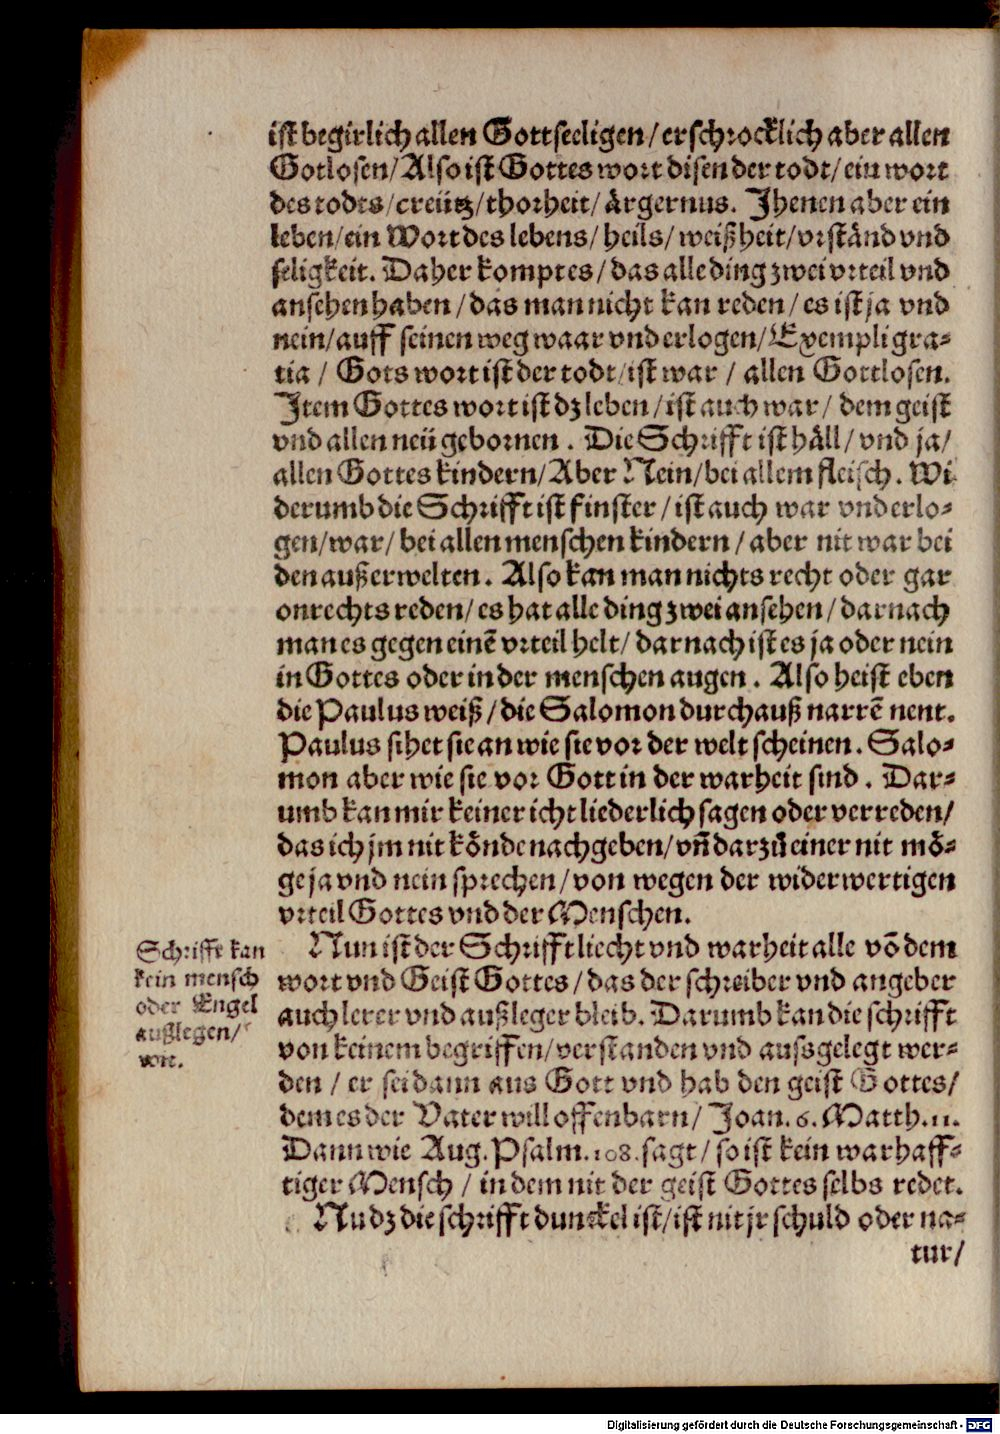 ist begirlich allen Gottseeligen/erschrocklich aber allen
Gotlosen/Also ist Gottes wort disen der todt/ein wort
des todts/creütz/thorheit/ärgernus. Jhenen aber ein
leben/ein Wort des lebens/heils/weißheit/vrständ vnd
seligkeit. Daher komptes/das alle ding zwei vrteil vnd
ansehen haben/das man nicht kan reden/es ist ja vnd
nein/auff seinen weg waar vnd erlogen/Exempli gra-
tia/Gots wort ist der todt/ist war/allen Gottlosen.
Item Gottes wort ist dz leben/ist auch war/dem geist
vnd allen neü gebornen. Die Schrifft ist häll/vnd ja/
allen Gottes kindern/Aber Nein/bei allem fleisch. Wi
derumb die Schrifft ist finster/ist auch war vnd erlo-
gen/war/bei allen menschen kindern/aber nit war bei
den außerwelten. Also kan man nichts recht oder gar
onrechts reden/es hat alle ding zwei ansehen/darnach
man es gegen einē vrteil helt/darnach ist es ja oder nein
in Gottes oder in der menschen augen. Also heist eben
die Paulus weiß/die Salomon durchauß narrē nent.
Paulus sihet sie an wie sie vor der welt scheinen. Salo-
mon aber wie sie vor Gott in der warheit sind. Dar-
umb kan mir keiner icht liederlich sagen oder verreden/
das ich jm nit könde nachgeben/vñ darzů einer nit mö-
ge ja vnd nein sprechen/von wegen der widerwertigen
vrteil Gottes vnd der Menschen.
Nun ist der Schrifft liecht vnd warheit alle võ dem
wort vnd Geist Gottes/das der schreiber vnd angeber
auch lerer vnd außleger bleib. Darumb kan die schrifft
von keinem begriffen/verstanden vnd aussgelegt wer-
den/er sei dann aus Gott vnd hab den geist Gottes/
dem es der Vater will offenbarn/Joan. 6. Matth. 11.
Dann wie Aug. Psalm. 108. sagt/so ist kein warhaff-
tiger Mensch/in dem nit der geist Gottes selbs redet.
Nu dz die schrifft dunckel ist/ist nit jr schuld oder na-
tur/
Schrifft kan
kein mensch
oder Engel
außlegen/
Digitalisierung gefördert durch die Deutsche Forschungsgemeinschaft - DFG